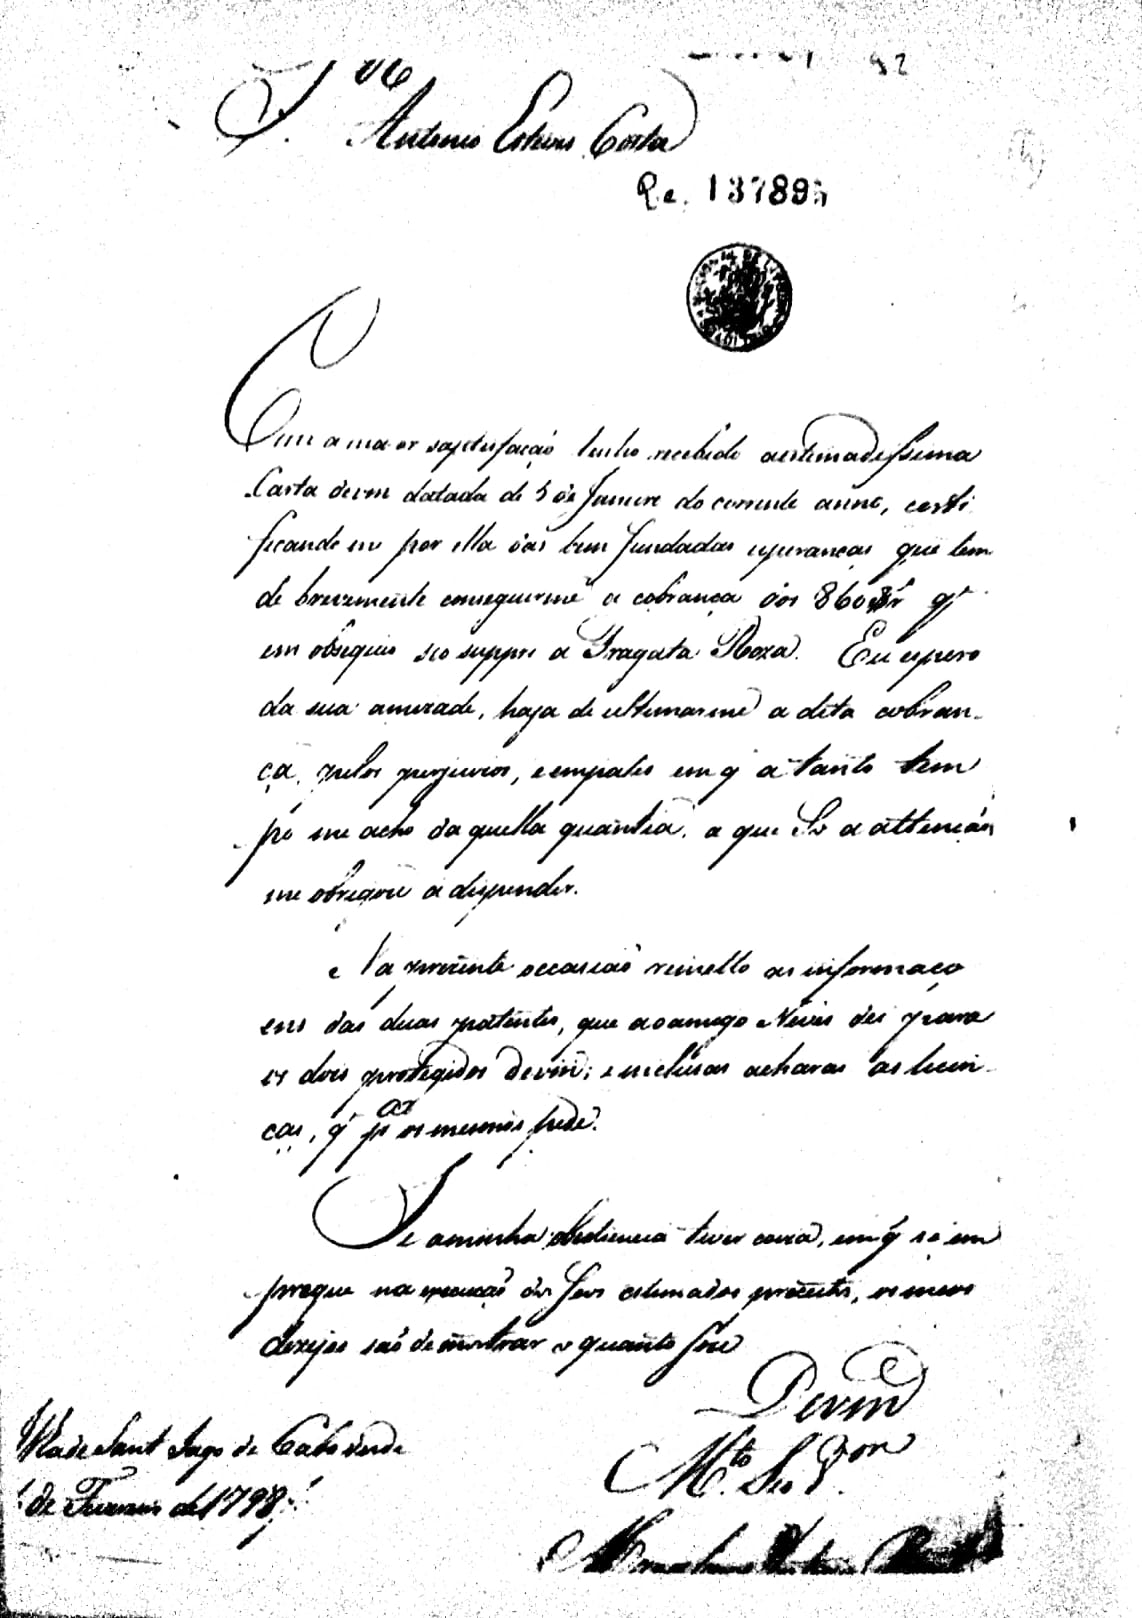 92
Antonio Esteves Costa
Re. 13789
Com a maior sastisfação tenho recebido a estimadessima
Carta devm datada de 5 de Janeiro do corrente anno, certi
ficandome por ella das bem fundadas esperanças que tem
de brevemente conseguirme a cobrança dos 860 q'
em obsequio seo suppri a Fragata Roza. Eu espero
da sua amizade, haja de ultimarme a dita cobran-
ça, pelos perjuizos, e empates em q' a tanto tem
po me acho daquella quantia, a que Só a attenção
me obrigou a dispender.
Na prezente occazião remetto as informaço
ens das duas patentes, que ao amigo Neves dei para
os dois protegidos devm; e incluzas achará as licen-
ças, q' pax os mesmos pede.
Se a minha obediencia tiver couza, em q' se em
pregue na execução dos seus estimados preceitos, os meus
dezejos são demonstrar o quanto sou
Devm
Mto Seo Vor
Villa de Sant Iago de Caboverde
de Fevereiro de 1798